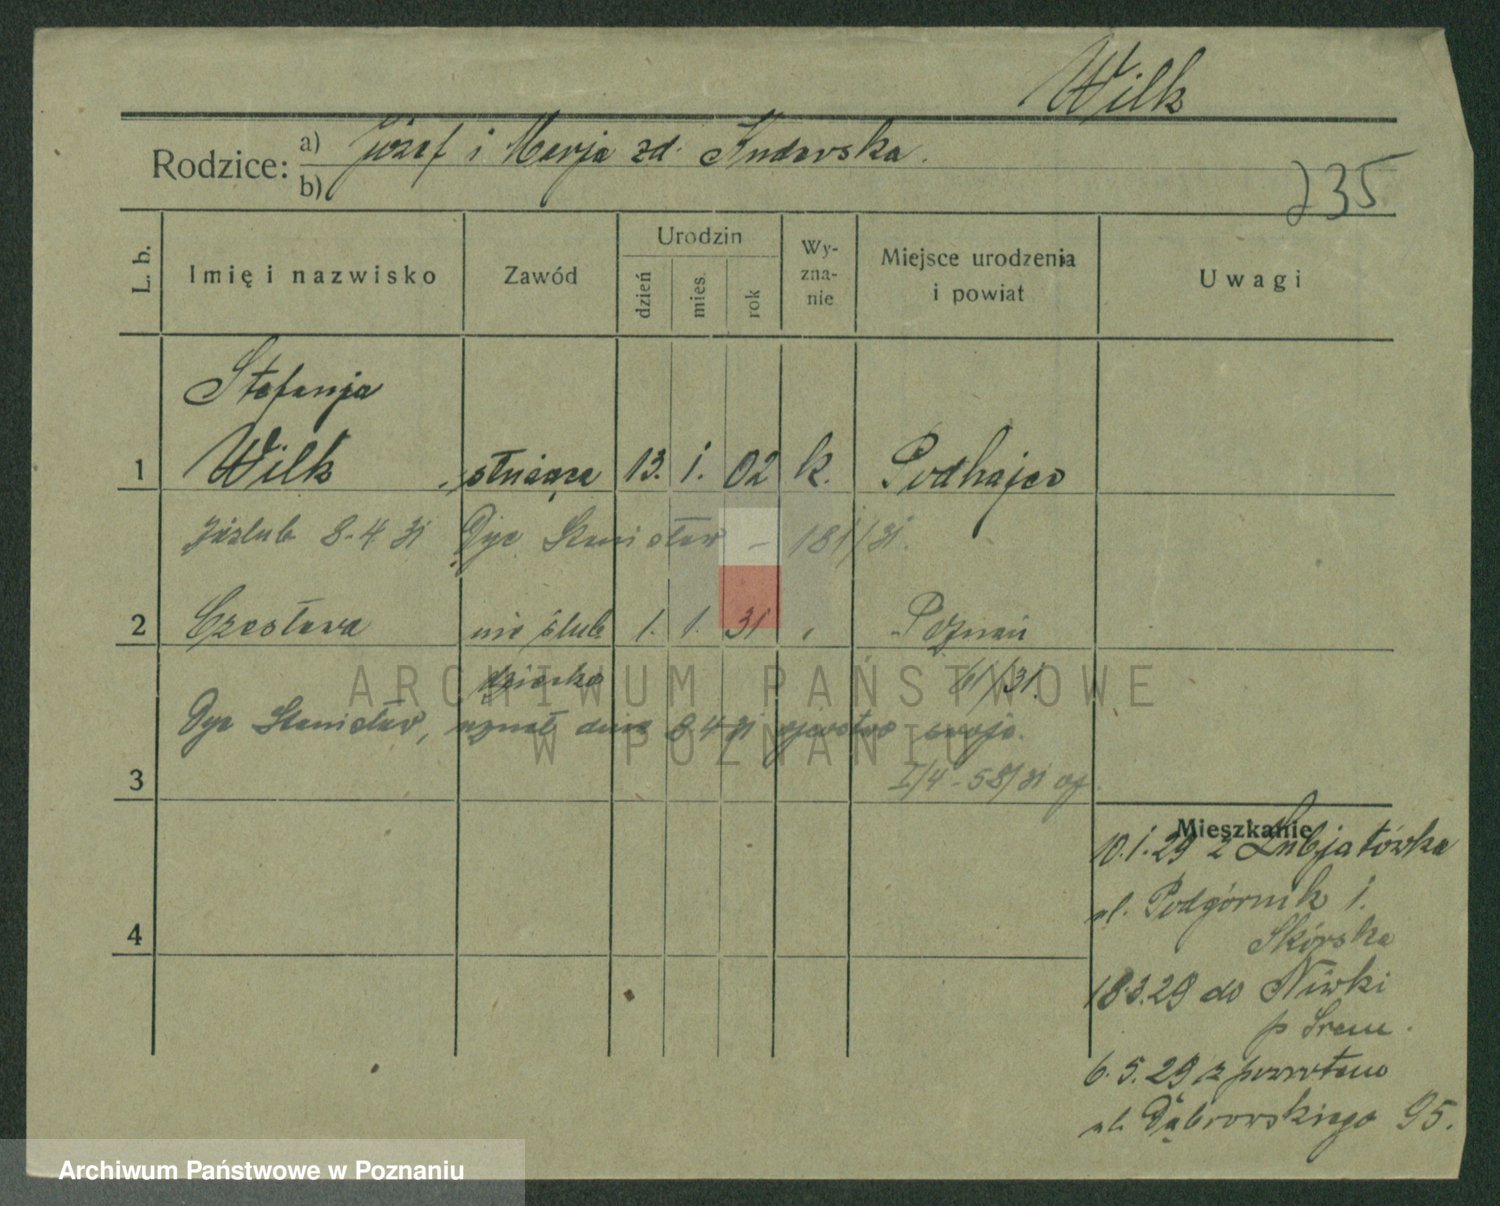 Wilk
Rodzice: a) Józef i Marja zd. Kudarska.
b)
235
L. b.
Imię i nazwisko
Zawód
Urodzin
dzień
mies.
rok
Wy-
zna-
nie
Miejsce urodzenia
i powiat
Uwagi
Stefanja
1 Wilk służąca 13. 1. 02 k. Podhajce
zaślub 8.4 31 Dyc Stanisław – 181/31.
2 Czesława nie ślub 1. 1. 31 Poznań
dziecko 61/31.
Dyc Stanisław, uznał dnia 8.4 31 ojcostwo swoje.
3 I/4-58/31
4
Mieszkanie
10.1.29 z Lubjatówka
ul. Podgórnik 1.
Skórska
18.3.29 do Niwki
p Śrem.
6.5.29 z powrotem
ul. Dąbrowskiego 95.
ARCHIWUM PAŃSTWOWE
W POZNANIU
Archiwum Państwowe w Poznaniu